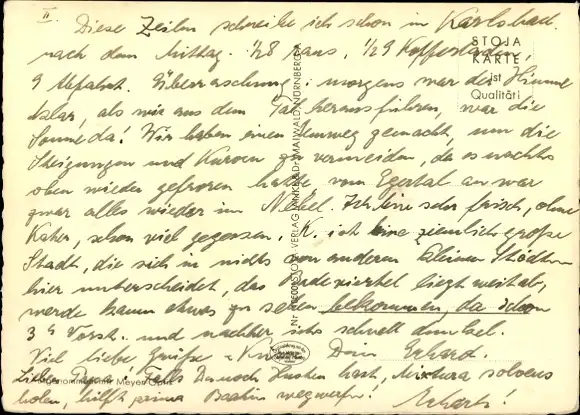 II
Diese Zeilen schreibe ich schon in Karlsbad.
nach dem Mittag. 1/28 raus, 1/29 Kofferladen,
9 Abfahrt. Überraschung: morgens war der Himmel
klar, als wir aus dem Tal herausfuhren, war die
Sonne da! Wir haben einen Umweg gemacht, um die
Steigungen und Kurven zu vermeiden, da es nachts
oben wieder gefroren hatte, vom Egertal an war
zwar alles wieder im Nebel. Ich bin sehr frisch, ohne
Kater, schon viel gegessen. K. ist eine ziemlich große
Stadt, die sich in nichts von anderen kleinen Städten
hier unterscheidet, das Badeviertel liegt weitab,
werde kaum etwas zu sehen bekommen, da schon
3 h Vorst. und nachher ists schnell dunkel.
Viel liebe Grüße Dein Erhard.
Lieber Papa! Falls Du noch Husten hast, Mixtura solvens
holen, hilft prima wegwerfen! Erhard!
STOJA
KARTE
ist
Qualität!